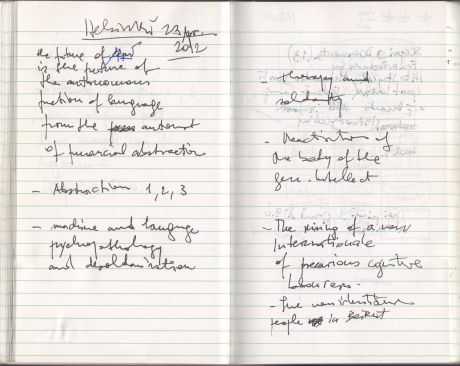 Helsinki 23 apr
2012
the future of
is the future of
the autonomous
function of language
from the automat
of financial abstraction
- Abstraction 1, 2, 3
- machine and language
psychopathology
and desolidarisation
- therapy and
solidarity
- Reactivation of
the body of the
gen. intellect
- The rising of a new
Internationale
of precarious cognitive
labourers.
people in Beirut